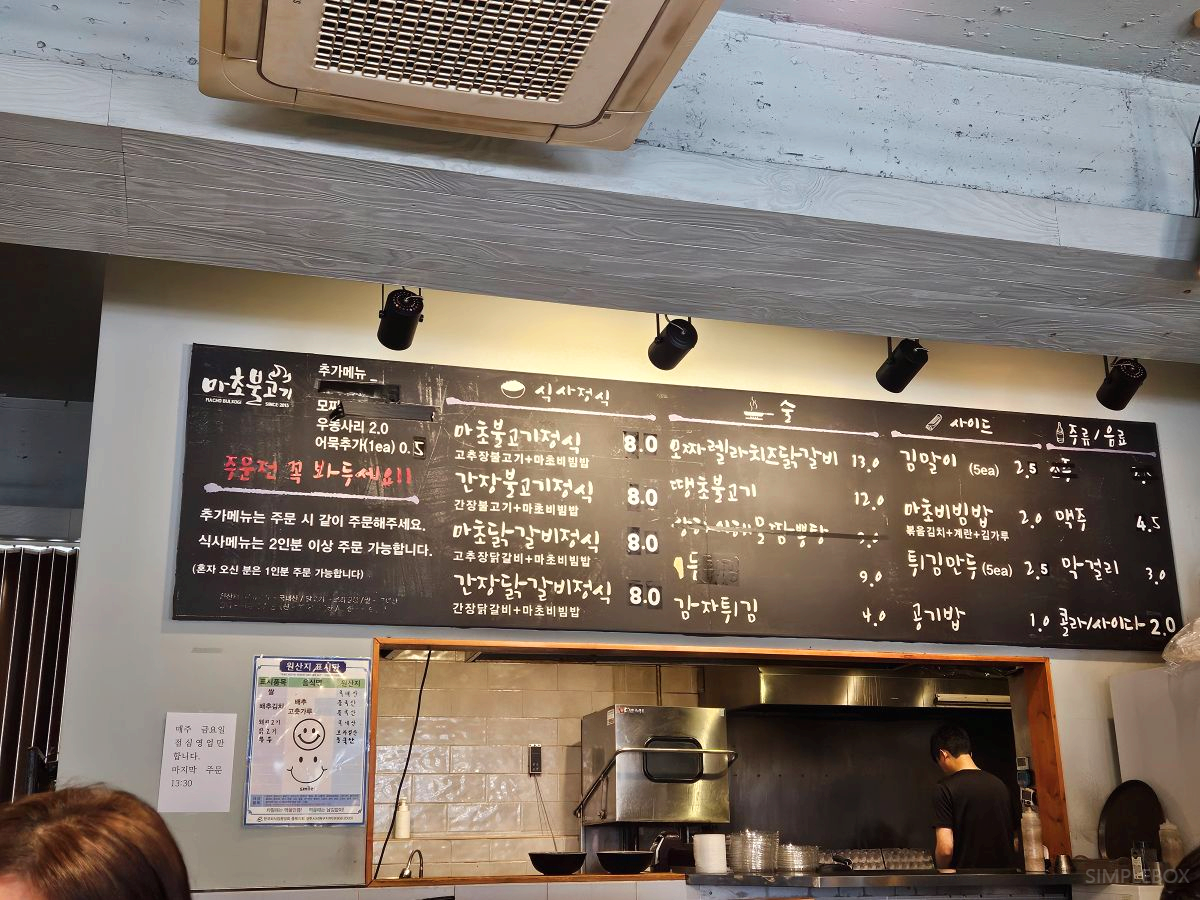 마초불고기
MACHO BULGOGI SINCE 2015
추가메뉴
우동사리 2.0
어묵추가(1ea) 0.5
주문전 꼭 봐두세요!!
추가메뉴는 주문 시 같이 주문해주세요.
식사메뉴는 2인분 이상 주문 가능합니다.
(혼자 오신 분은 1인분 주문 가능합니다)
식사정식
마초불고기정식 8.0
고추장불고기+마초비빔밥
간장불고기정식 8.0
간장불고기+마초비빔밥
마초닭갈비정식 8.0
고추장닭갈비+마초비빔밥
간장닭갈비정식 8.0
간장닭갈비+마초비빔밥
술
모짜렐라치즈닭갈비 13.0
땡초불고기 12.0
9.0
감자튀김 4.0
사이드
김말이 (5ea) 2.5
마초비빔밥 2.0
볶음김치+계란+김가루
튀김만두 (5ea) 2.5
공기밥 1.0
주류/음료
맥주 4.5
막걸리 3.0
콜라/사이다 2.0
원산지 표시판
표시품목 음식명 원산지
쌀 국내산
배추김치 배추 중국산
고춧가루 중국산
돼지고기 국내산
닭고기
smile
매주 금요일
점심영업만
합니다.
마지막 주문
13:30
SIMPLEBOX